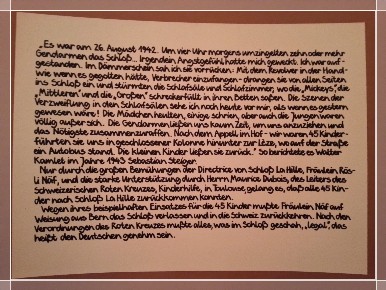 „Es war am 26. August 1942. Um vier Uhr morgens umzingelten zehn oder mehr
Gendarmen das Schloß... Irgendein Angstgefühl hatte mich geweckt. Ich war auf-
gestanden. Im Dämmerschein sah ich sie vorrücken: Mit dem Revolver in der Hand-
wie wenn es gegolten hätte, Verbrecher einzufangen - drangen sie von allen Seiten
ins Schloß ein und stürmten die Schlafsäle und Schlafzimmer, wo die „Mickeys", die
„Mittleren" und die „Großen" schreckerfüllt in ihren Betten saßen. Die Szenen der
Verzweiflung in den Schlafsälen sehe ich noch heute vor mir, als wenn es gestern
gewesen wäre! Die Mädchen heulten, einige schrien, aber auch die Jungen waren
völlig außer sich. Die Gendarmen ließen uns kaum Zeit, um uns anzuziehen und
das Nötigste zusammenzuraffen. Nach dem Appell im Hof - wir waren 45 Kinder-
führten sie uns in geschlossener Kolonne hinunter zur Lèze, wo auf der Straße
ein Autobus stand. Die kleinen Kinder ließen sie zurück." So berichtete es Walter
Kamlet im Jahre 1943 Sebastian Steiger.
Nur durch die großen Bemühungen der Directrice von Schloß La Hille, Fräulein Rös-
li Näf, und die starke Unterstützung durch Herrn Maurice Dubois, des Leiters des
Schweizerischen Roten Kreuzes, Kinderhilfe, in Toulouse, gelang es, daß alle 45 Kin-
der nach Schloß La Hille zurückkommen konnten.
Wegen ihres beispielhaften Einsatzes für die 45 Kinder mußte Fräulein Näf auf
Weisung aus Bern das Schloß verlassen und in die Schweiz zurückkehren. Nach den
Verordnungen des Roten Kreuzes mußte alles, was im Schloß geschah, „legal", das
heißt den Deutschen genehm sein.